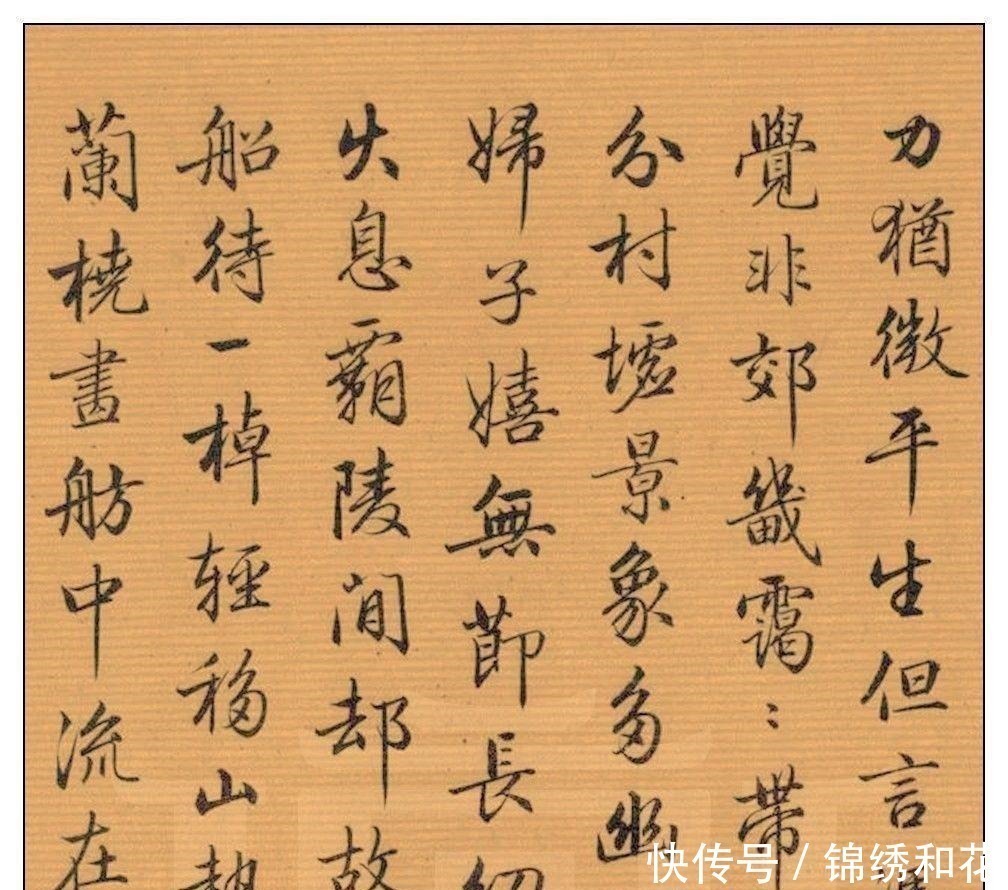 力猶微平生但言
覺非郊畿靄〻帶
分村墟景象多幽
婦子嬉無節長
失息霸陵間却故
船待一棹輕移山
蘭橈畫舫中流在
快传号 / 锦绣和花